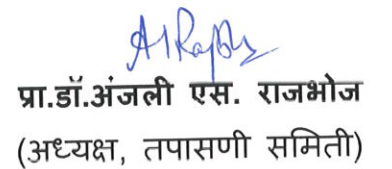 प्रा.डॉ.अंजली एस. राजभोज
(अध्यक्ष, तपासणी समिती)